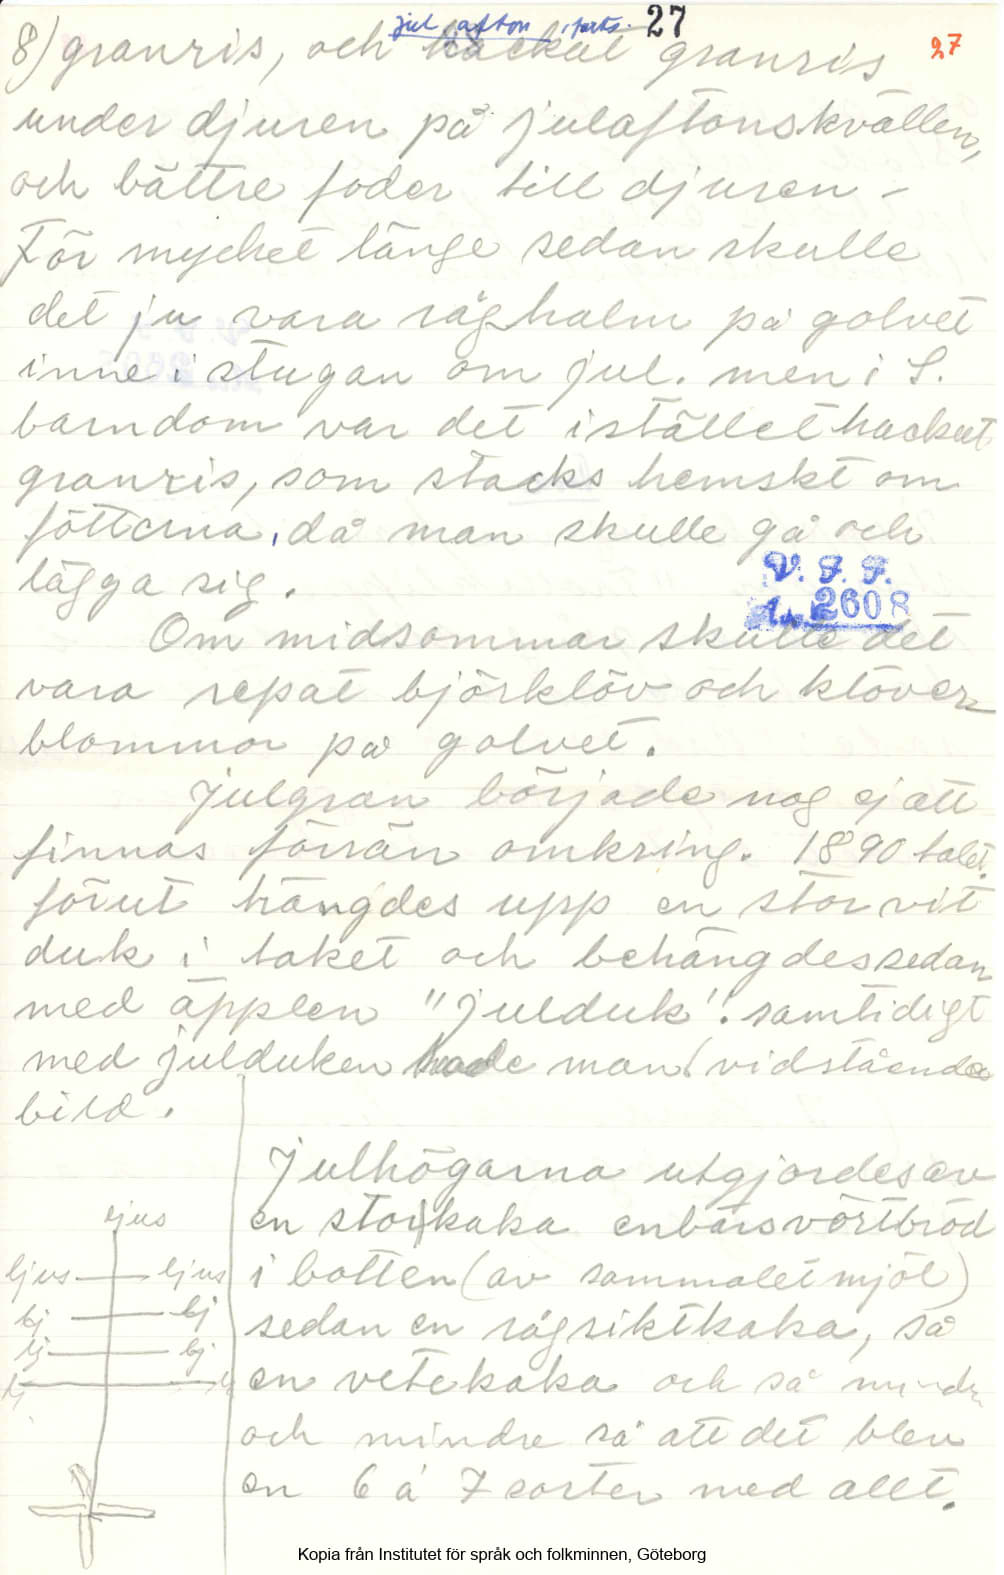 jul afton
27
27
8) granris, och hackat granris
under djuren på julaftonskvällen,
och bättre foder till djuren –
För mycket länge sedan skulle
det ju vara råghalm på golvet
inne i stugan om jul. men i S.
barndom var det istället hackat
granris, som stacks hemskt om
fötterna, då man skulle gå och
lägga sig.
V. F. F.
2608
Om midsommar skulle det
vara repat björklöv och klöver
blommor på golvet.
Julgran började nog ej att
finnas förrän omkring. 1890 talet.
förut hängdes upp en stor vit
duk i taket och behängdes sedan
med äpplen "julduk". samtidigt
med julduken hade man vidstående
bild.
ljus
ljus ljus
lj lj
lj lj
lj
Julhögarna utgjordes av
en stor kaka enbärsvörtbröd
i botten (av sammalet mjöl)
sedan en rågsiktkaka, så
en vetekaka och så mindre
och mindre så att det blev
en 6 á 7 sorter med allt.
Kopia från Institutet för språk och folkminnen, Göteborg